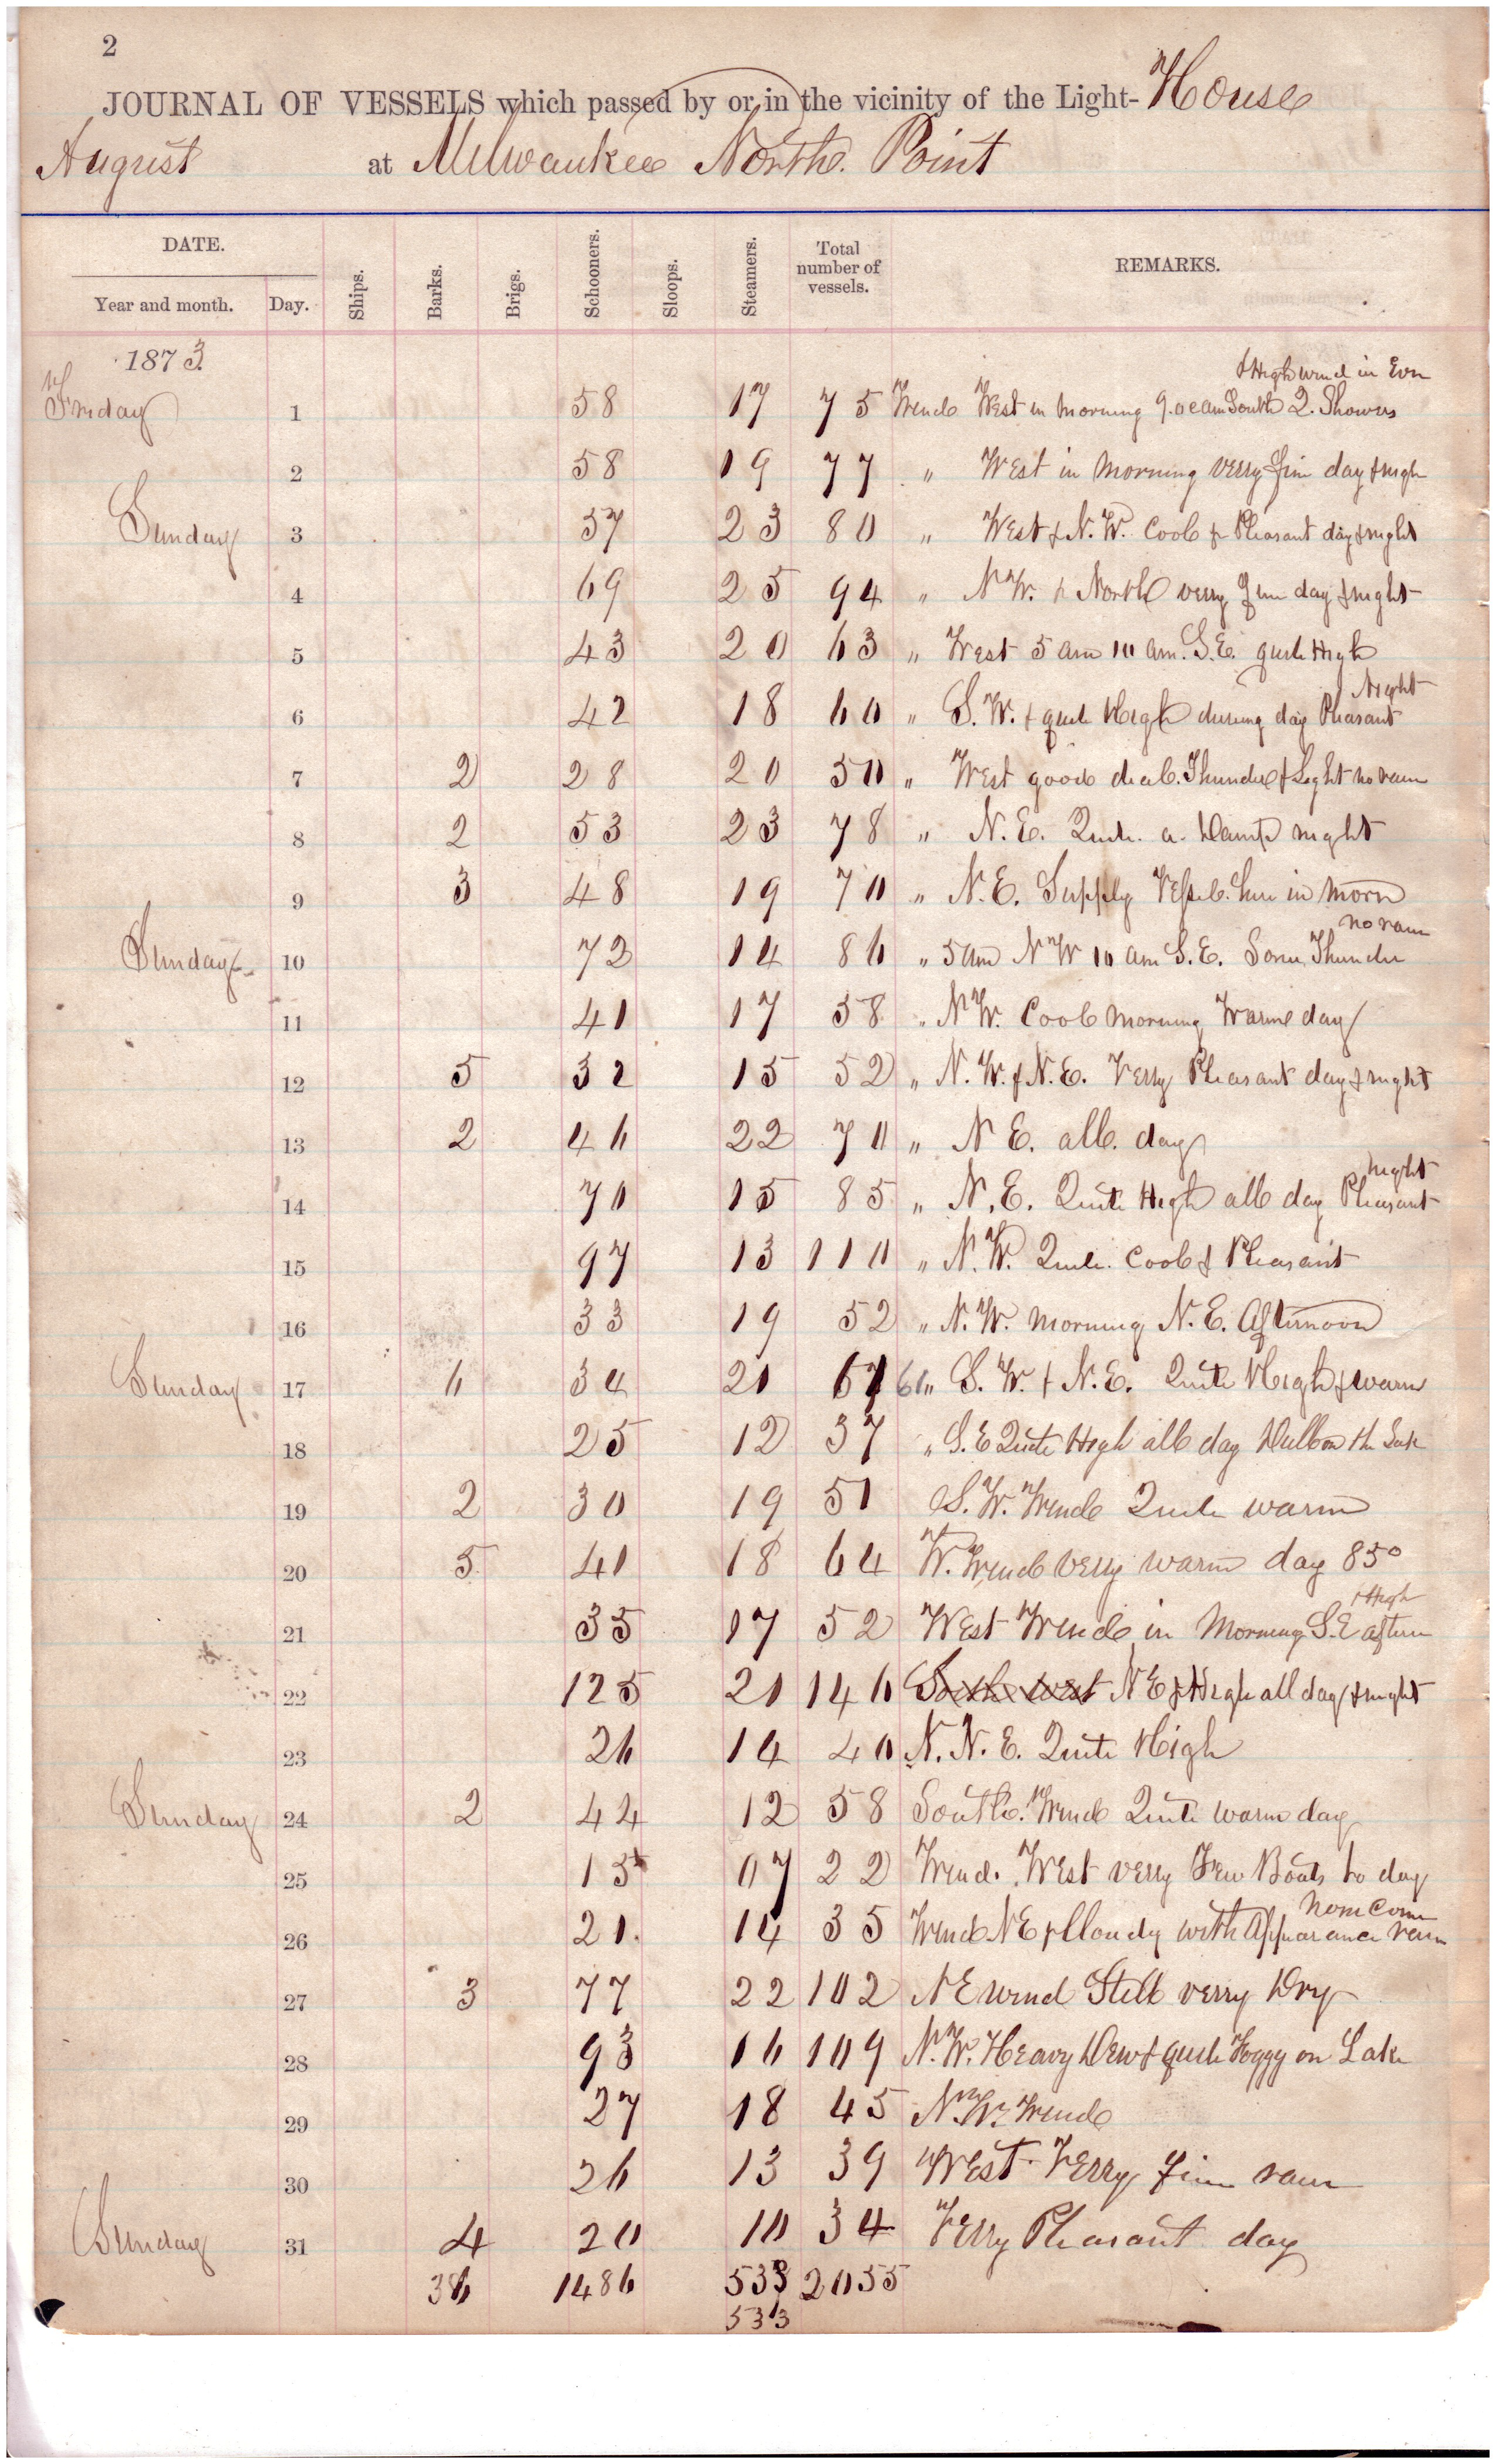 2
JOURNAL OF VESSELS which passed by or in the vicinity of the Light-House
August at Milwaukee North. Point
DATE. Ships. Barks. Brigs. Schooners. Sloops. Steamers. Total number of vessels. REMARKS.
Year and month. Day.
1873
& High wind in Even
Friday 1 58 17 75 Wind West in morning 9.00 am South 2. Showers
2 58 19 77 " West in Morning verry fine day & nigh
Sunday 3 57 23 80 " West & N. W. Cool & Pleasant day & night
4 69 25 94 " N W. & North verry fine day & night
5 43 20 63 " West 5 am 10 am. S. E. quite High
Night
6 42 18 60 " S. W. & quite High during day Pleasant
7 2 28 20 50 " West good deal. Thunder & Light no rain
8 2 53 23 78 " N. E. Quite. a. Damp night
9 3 48 19 70 " N. E. Supply Vessel. here in morn
no rain
Sunday 10 72 14 86 " 5 am N W 10 am S. E. Some Thunder
11 41 17 58 " N W. Cool morning Warme day
12 5 32 15 52 " N. W. & N. E. Verry Pleasant day & night
13 2 46 22 70 " N E. all. day
night
14 70 15 85 " N. E. Quite High all day Pleasant
15 97 13 110 " N. W. Quite. Cool & Pleasant
16 33 19 52 " N. W. morning N. E. Afternoon
Sunday 17 6 34 21 61 " S. W. & N. E. Quite High & warm
18 25 12 37 " S. E Quite High all day Dull on the Lake
19 2 30 19 51 S. W. Wind Quite warm
20 5 41 18 64 W. Wind verry warm day 85°
& High
21 35 17 52 West Wind in Morning S. E aftern
22 125 21 146 South west N E & High all day & night
23 26 14 40 N. N. E. Quite High
Sunday 24 2 44 12 58 South. Wind Quite warm day
25 15 07 22 Wind. West verry Few Boats to day
none Come
26 21. 14 35 Wind N E & Cloudy with Appearance rain
27 3 77 22 102 N E wind Still verry Dry
28 93 16 109 N. W. Heavy Dew & quite Foggy on Lake
29 27 18 45 N. W. Wind
30 26 13 39 West Verry fine rain
Sunday 31 4 20 10 34 Verry Pleasant day
36 1486 533 2055
533